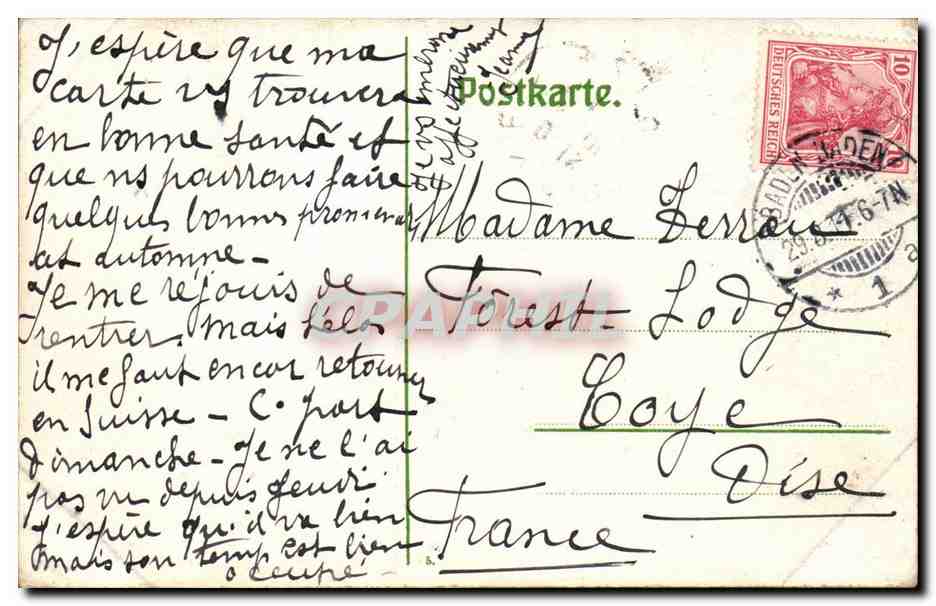 J'espère que ma
carte vs trouvera
en bonne santé et
que ns pourrons faire
quelques bonnes promenades
cet automne -
Je me réjouis de
rentrer. Mais hélas
il me faut encor retourner
en Suisse - C. part
Dimanche - Je ne l'ai
pas vu depuis Jeudi
J'espère qu'il va bien
mais son temps est bien
occupé -
Je vs embrasse
affectueusement
Jeanne
Postkarte.
Madame Terrau
Forest-Lodge
Coye
Oise
France
5.
10
DEUTSCHES REICH
BADEN-BADEN
29.6.11.6-7N
* 1 a
CPAPHIL